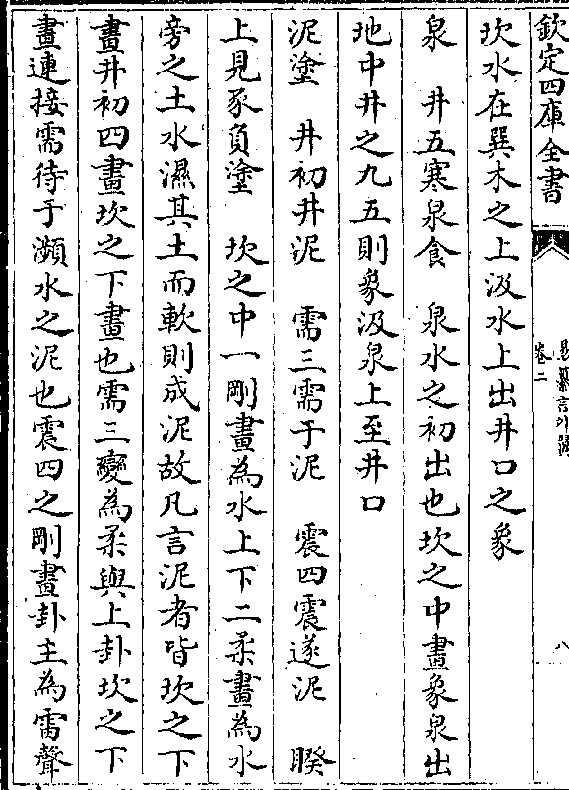 欽定四庫全書
易纂言外翼
卷二
八
坎水在巽木之上汲水上出井口之象
泉　井五寒泉食　泉水之初出也坎之中畫象泉出
地中井之九五則象汲泉上至井口
泥塗　井初井泥　需三需于泥　震四震遂泥　睽
上見豕負塗　坎之中一剛畫為水上下二柔畫為水
旁之土水濕其土而軟則成泥故凡言泥者皆坎之下
畫井初四畫坎之下畫也需三變為柔與上卦坎之下
畫連接需待于瀕水之泥也震四之剛畫卦主為雷聲